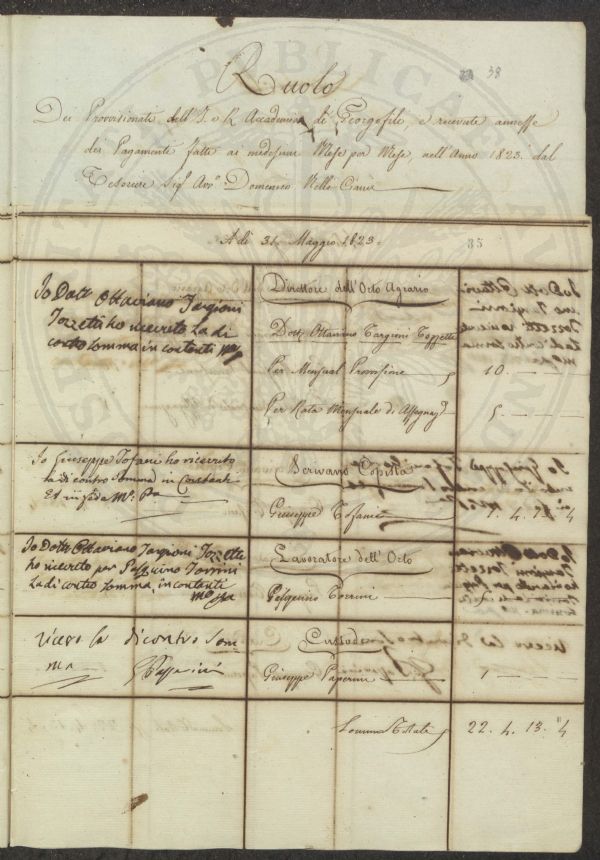 Ruolo
38
Dei Provisionati dell'I. e R. Accademia dei Georgofili, e ricevute annesse
dei Pagamenti fatti ai medesimi Mese per Mese, nell'Anno 1823. dal
Tesoriere Sigr. Avvo. Domenico Nelli Ciani
A dì 31. Maggio 1823.
35
Io Dott Ottaviano Targioni
Tozzetti ho ricevuto La di
contro Somma in contanti
Direttore dell'Orto Agrario
Dottr. Ottaviano Targioni Tozzetti
Per Mensual Provisione
10. — —
Per Rata Mensuale di Assegnaz.
5 — — —
Io Giuseppe Tofani ho ricevuto
la di contro Somma in Contanti
Et in fede Mo. Pa
Scrivano Copista
Giuseppe Tofani
1. 4. 13. 4
Io Dott Ottaviano Targioni Tozzetti
ho ricevuto per Pasquino Torrini
La di contro Somma, in contanti
Lavoratore dell'Orto
Pasquino Torrini
5
ricevo la di contro Som
ma
Custode
Giuseppe Paperini
1 — — —
Somma Totale
22. 4. 13. 4